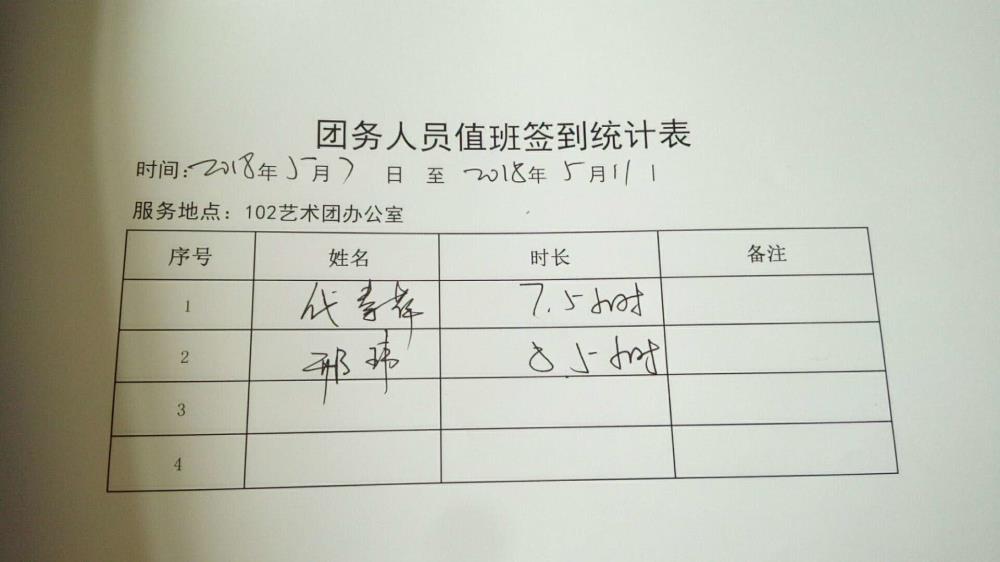 团务人员值班签到统计表
时间:2018年5月7 日 至 2018年5月11日
服务地点：102艺术团办公室
序号 姓名 时长 备注
1 代 7.5小时
2 邢玮 8.5小时
3
4